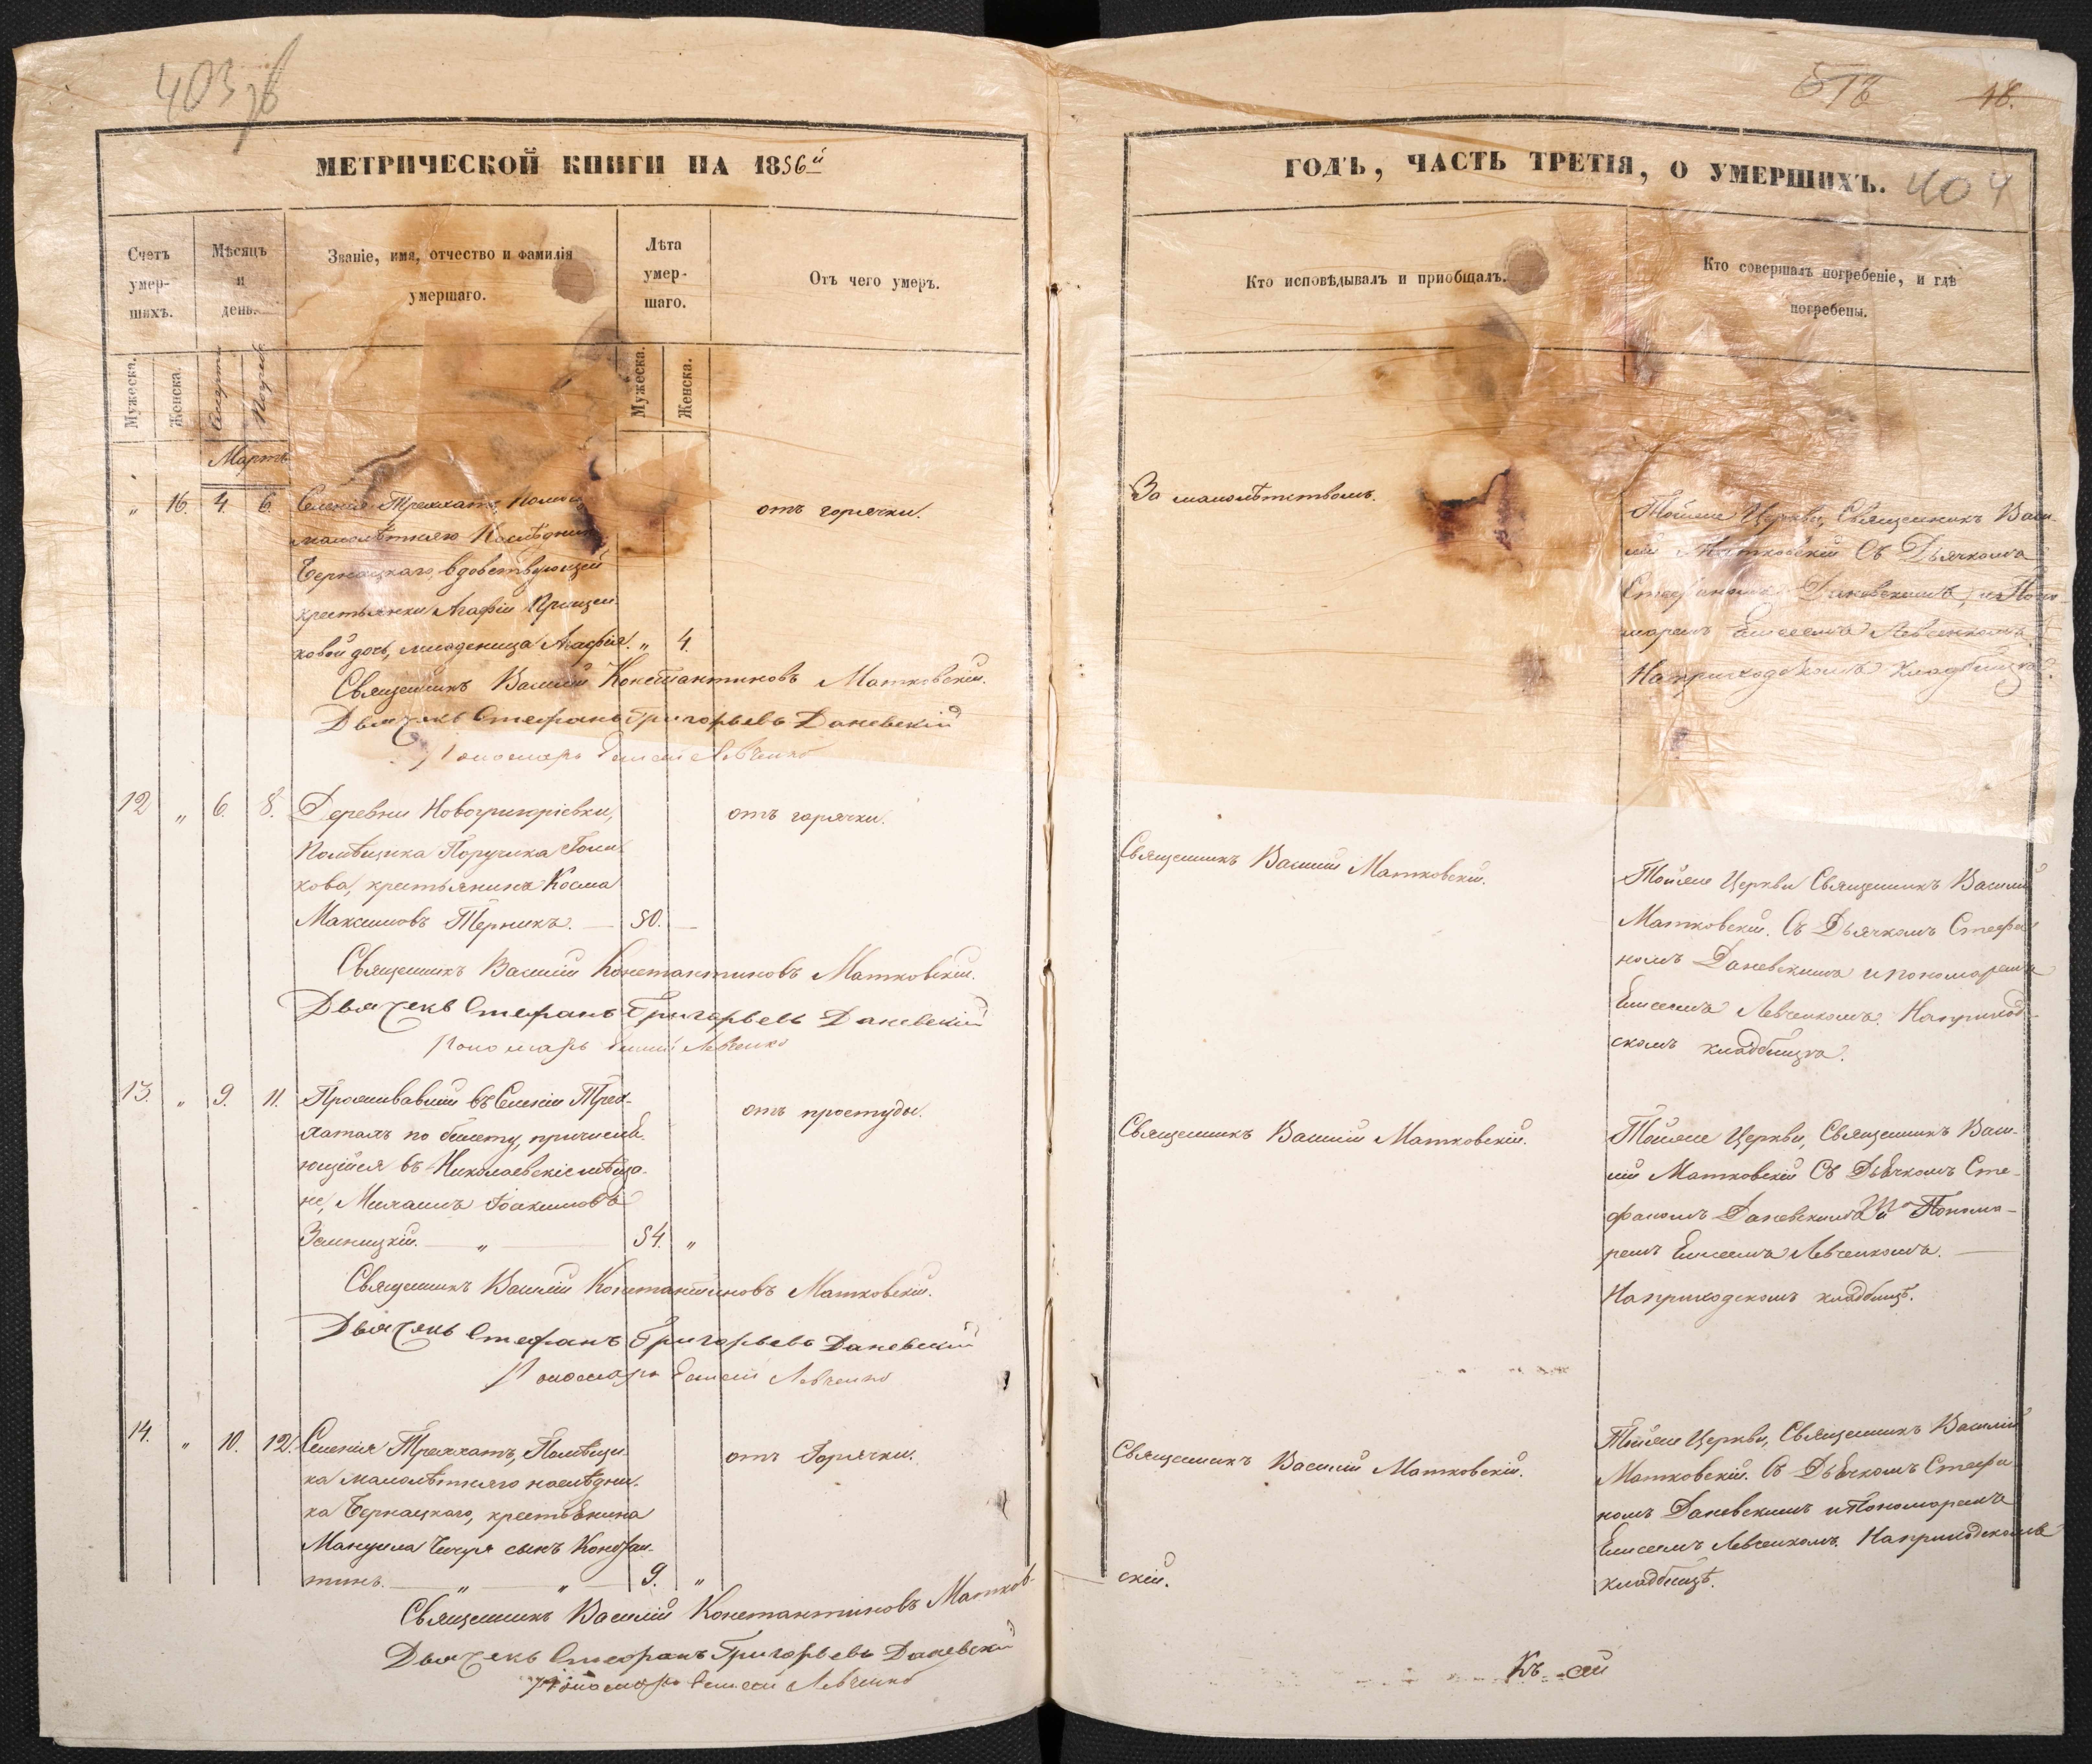 403 зв
МЕТРИЧЕСКОЙ КНИГИ НА 1856й
Счетъ умер-шихъ.
Мѣсяцъ и день.
Званіе, имя, отчество и фамилія умершаго.
Лѣта умер-шаго.
Отъ чего умеръ.
Мужеска.
Женска.
Мужеска.
Женска.
Мартъ
" 16. 4. 6. Селенія Трихатъ,
отъ горячки.
малолѣтняго Наслѣдника
Бернацкаго, вдовствующей
крестьянки Агафіи Прищен-
ковой дочь, младеница Агафія. " 4.
Священникъ Василій Константиновъ Матковскій.
Дьячекъ Стефанъ Григорьевъ Даневскій
Пономарь Елисей Левченко
12 " 6. 8. Деревни Новогригоріевки,
отъ горячки.
Помѣщика Поручика
кова, крестьянинъ Косма
Максимовъ Терникъ. — 50. —
Священникъ Василій Константиновъ Матковскій.
Дьячекъ Стефанъ Григорьевъ Даневскій
Пономарь Елисей Левченко
13. " 9. 11. Проживавший въ Селеніи Трех-
отъ простуды.
хатахъ по билету, причисля-
ющійся въ Николаевскіе мѣща-
не, Михаилъ Іоакимовъ
" 54. "
Священникъ Василій Константиновъ Матковскій.
Дьячекъ Стефанъ Григорьевъ Даневскій
Пономарь Елисей Левченко
14. " 10. 12. Селенія Треххатъ, Помѣщи-
отъ Горячки.
ка малолѣтняго наслѣдни-
ка Бернацкаго, крестьянина
Мануила сынъ Констан-
тинъ. — " — " — 9. "
Священникъ Василій Константиновъ Матков-
Дьячекъ Стефанъ Григорьевъ Даневскій
Пономарь Елисей Левченко
18.
ГОДЪ, ЧАСТЬ ТРЕТІЯ, О УМЕРШИХЪ. 404
Кто исповѣдывалъ и приобщалъ.
Кто совершалъ погребеніе, и гдѣ
погребены.
За малолѣтствомъ.
Тойже Церкви, Священникъ Васи-
лій Матковскій Съ Дьячкомъ
Стефаномъ Даневскимъ, и Поно-
маремъ Елисеемъ Левченкомъ
На приходскомъ кладбищѣ.
Священникъ Василій Матковскій.
Тойже Церкви Священникъ Василій
Матковскій. Съ Дьячкомъ Стефа-
номъ Даневскимъ и пономаремъ
Елисеемъ Левченкомъ. На приход-
скомъ кладбищѣ.
Священникъ Василій Матковскій.
Тойже Церкви, Священникъ Васи-
лій Матковскій Съ Дьячкомъ Сте-
фаномъ Даневскимъ и Понома-
ремъ Елисеемъ Левченкомъ. —
На приходскомъ кладбищѣ.
Священникъ Василій Матковскій.
Тойже Церкви, Священникъ Василій
Матковскій. Съ Дьячкомъ Стефа-
номъ Даневскимъ и Пономаремъ
Елисеемъ Левченкомъ. На приходскомъ
кладбищѣ.
скій.
Къ сей